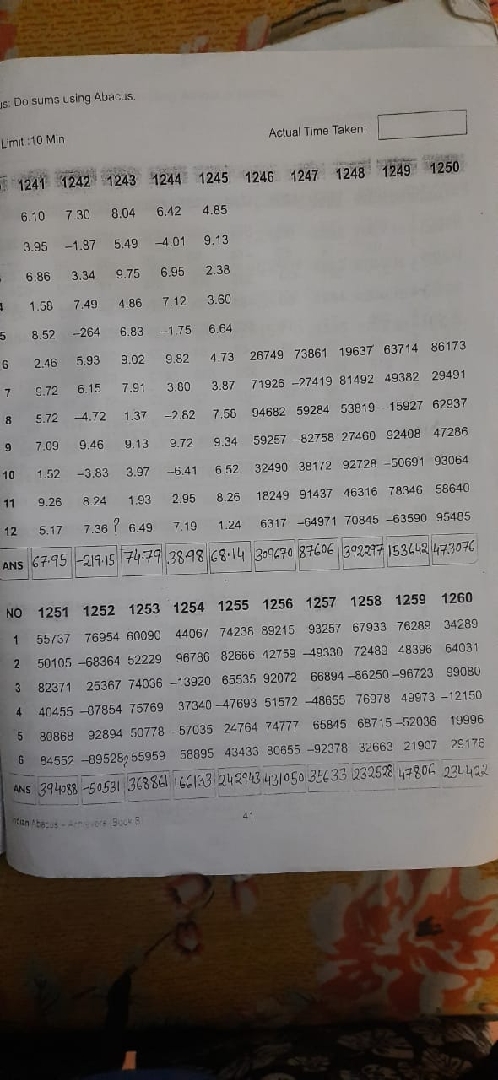 us: Do sums using Abacus.
Limit :10 Min Actual Time Taken
1241 1242 1243 1244 1245 1246 1247 1248 1249 1250
6.10 7.30 8.04 6.42 4.85
3.95 -1.87 5.49 -4.01 9.13
6.86 3.34 9.75 6.95 2.38
4 1.58 7.49 4.86 7.12 3.60
5 8.52 -264 6.83 -1.75 6.64
6 2.46 5.93 9.02 9.82 4.73 26749 73861 19637 63714 86173
7 9.72 6.15 7.91 3.80 3.87 71926 -27419 81492 49382 29491
8 5.72 -4.72 1.37 -2.62 7.56 94682 59284 53819 15927 62937
9 7.09 9.46 9.13 9.72 9.34 59257 82758 27460 92408 47286
10 1.52 -3.83 3.97 -5.41 6.52 32490 38172 92728 -50691 93064
11 9.26 8.24 1.93 2.95 8.26 18249 91437 46316 78346 58640
12 5.17 7.36 ? 6.49 7.19 1.24 6317 -64971 70845 -63590 95485
ANS 67.95 -219.15 74.79 38.98 68.14 309670 87606 392297 153642 473076
NO 1251 1252 1253 1254 1255 1256 1257 1258 1259 1260
1 55737 76954 60090 44067 74236 89215 93257 67933 76289 34289
2 50105 -68364 52229 96786 82666 42759 -49330 72483 48396 64031
3 82371 25367 74036 -13920 65535 92072 66894 -86250 -96723 99080
4 40455 -87854 75769 37340 -47693 51572 -48655 76978 49973 -12150
5 80868 92894 50778 57035 24764 74777 65845 68715 -52036 19996
6 84552 -89528 ? 55959 58895 43433 80655 -92378 32663 21907 29178
ANS 394088 -50531 368861 242943 431050 35633 232528 47806 234422